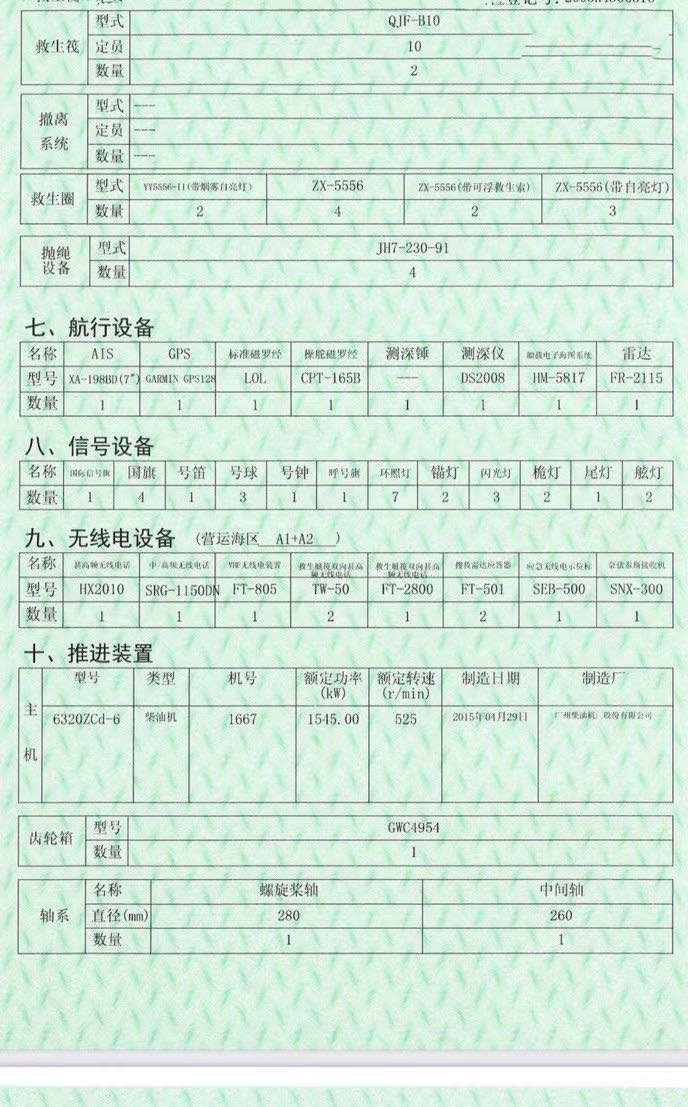 型式 QJF-B10
救生筏 定员 10
数量 2
型式 ---
撤离系统 定员 ---
数量 ---
救生圈 型式 YY5556-11(带烟雾自亮灯) ZX-5556 ZX-5556(带可浮救生索) ZX-5556(带自亮灯)
数量 2 4 2 3
抛绳设备 型式 JH7-230-91
数量 4
七、航行设备
名称 AIS GPS 标准磁罗经 操舵磁罗经 测深锤 测深仪 船载电子海图系统 雷达
型号 XA-198BD(7") GARMIN GPS128 LOL CPT-165B --- DS2008 HM-5817 FR-2115
数量 1 1 1 1 1 1 1 1
八、信号设备
名称 国际信号旗 国旗 号笛 号球 号钟 呼号旗 环照灯 锚灯 闪光灯 桅灯 尾灯 舷灯
数量 1 4 1 3 1 1 7 2 3 2 1 2
九、无线电设备 (营运海区 A1+A2 )
名称 甚高频无线电话 中/高频无线电话 VHF无线电装置 救生艇筏双向甚高频无线电话 救生艇筏双向甚高频无线电话 搜救雷达应答器 应急无线电示位标 奈伏泰斯接收机
型号 HX2010 SRG-1150DN FT-805 TW-50 FT-2800 FT-501 SEB-500 SNX-300
数量 1 1 1 2 1 2 1 1
十、推进装置
型号 类型 机号 额定功率(kW) 额定转速(r/min) 制造日期 制造厂
主机 6320ZCd-6 柴油机 1667 1545.00 525 2015年04月29日 广州柴油机厂股份有限公司
齿轮箱 型号 GWC4954
数量 1
名称 螺旋桨轴 中间轴
轴系 直径(mm) 280 260
数量 1 1